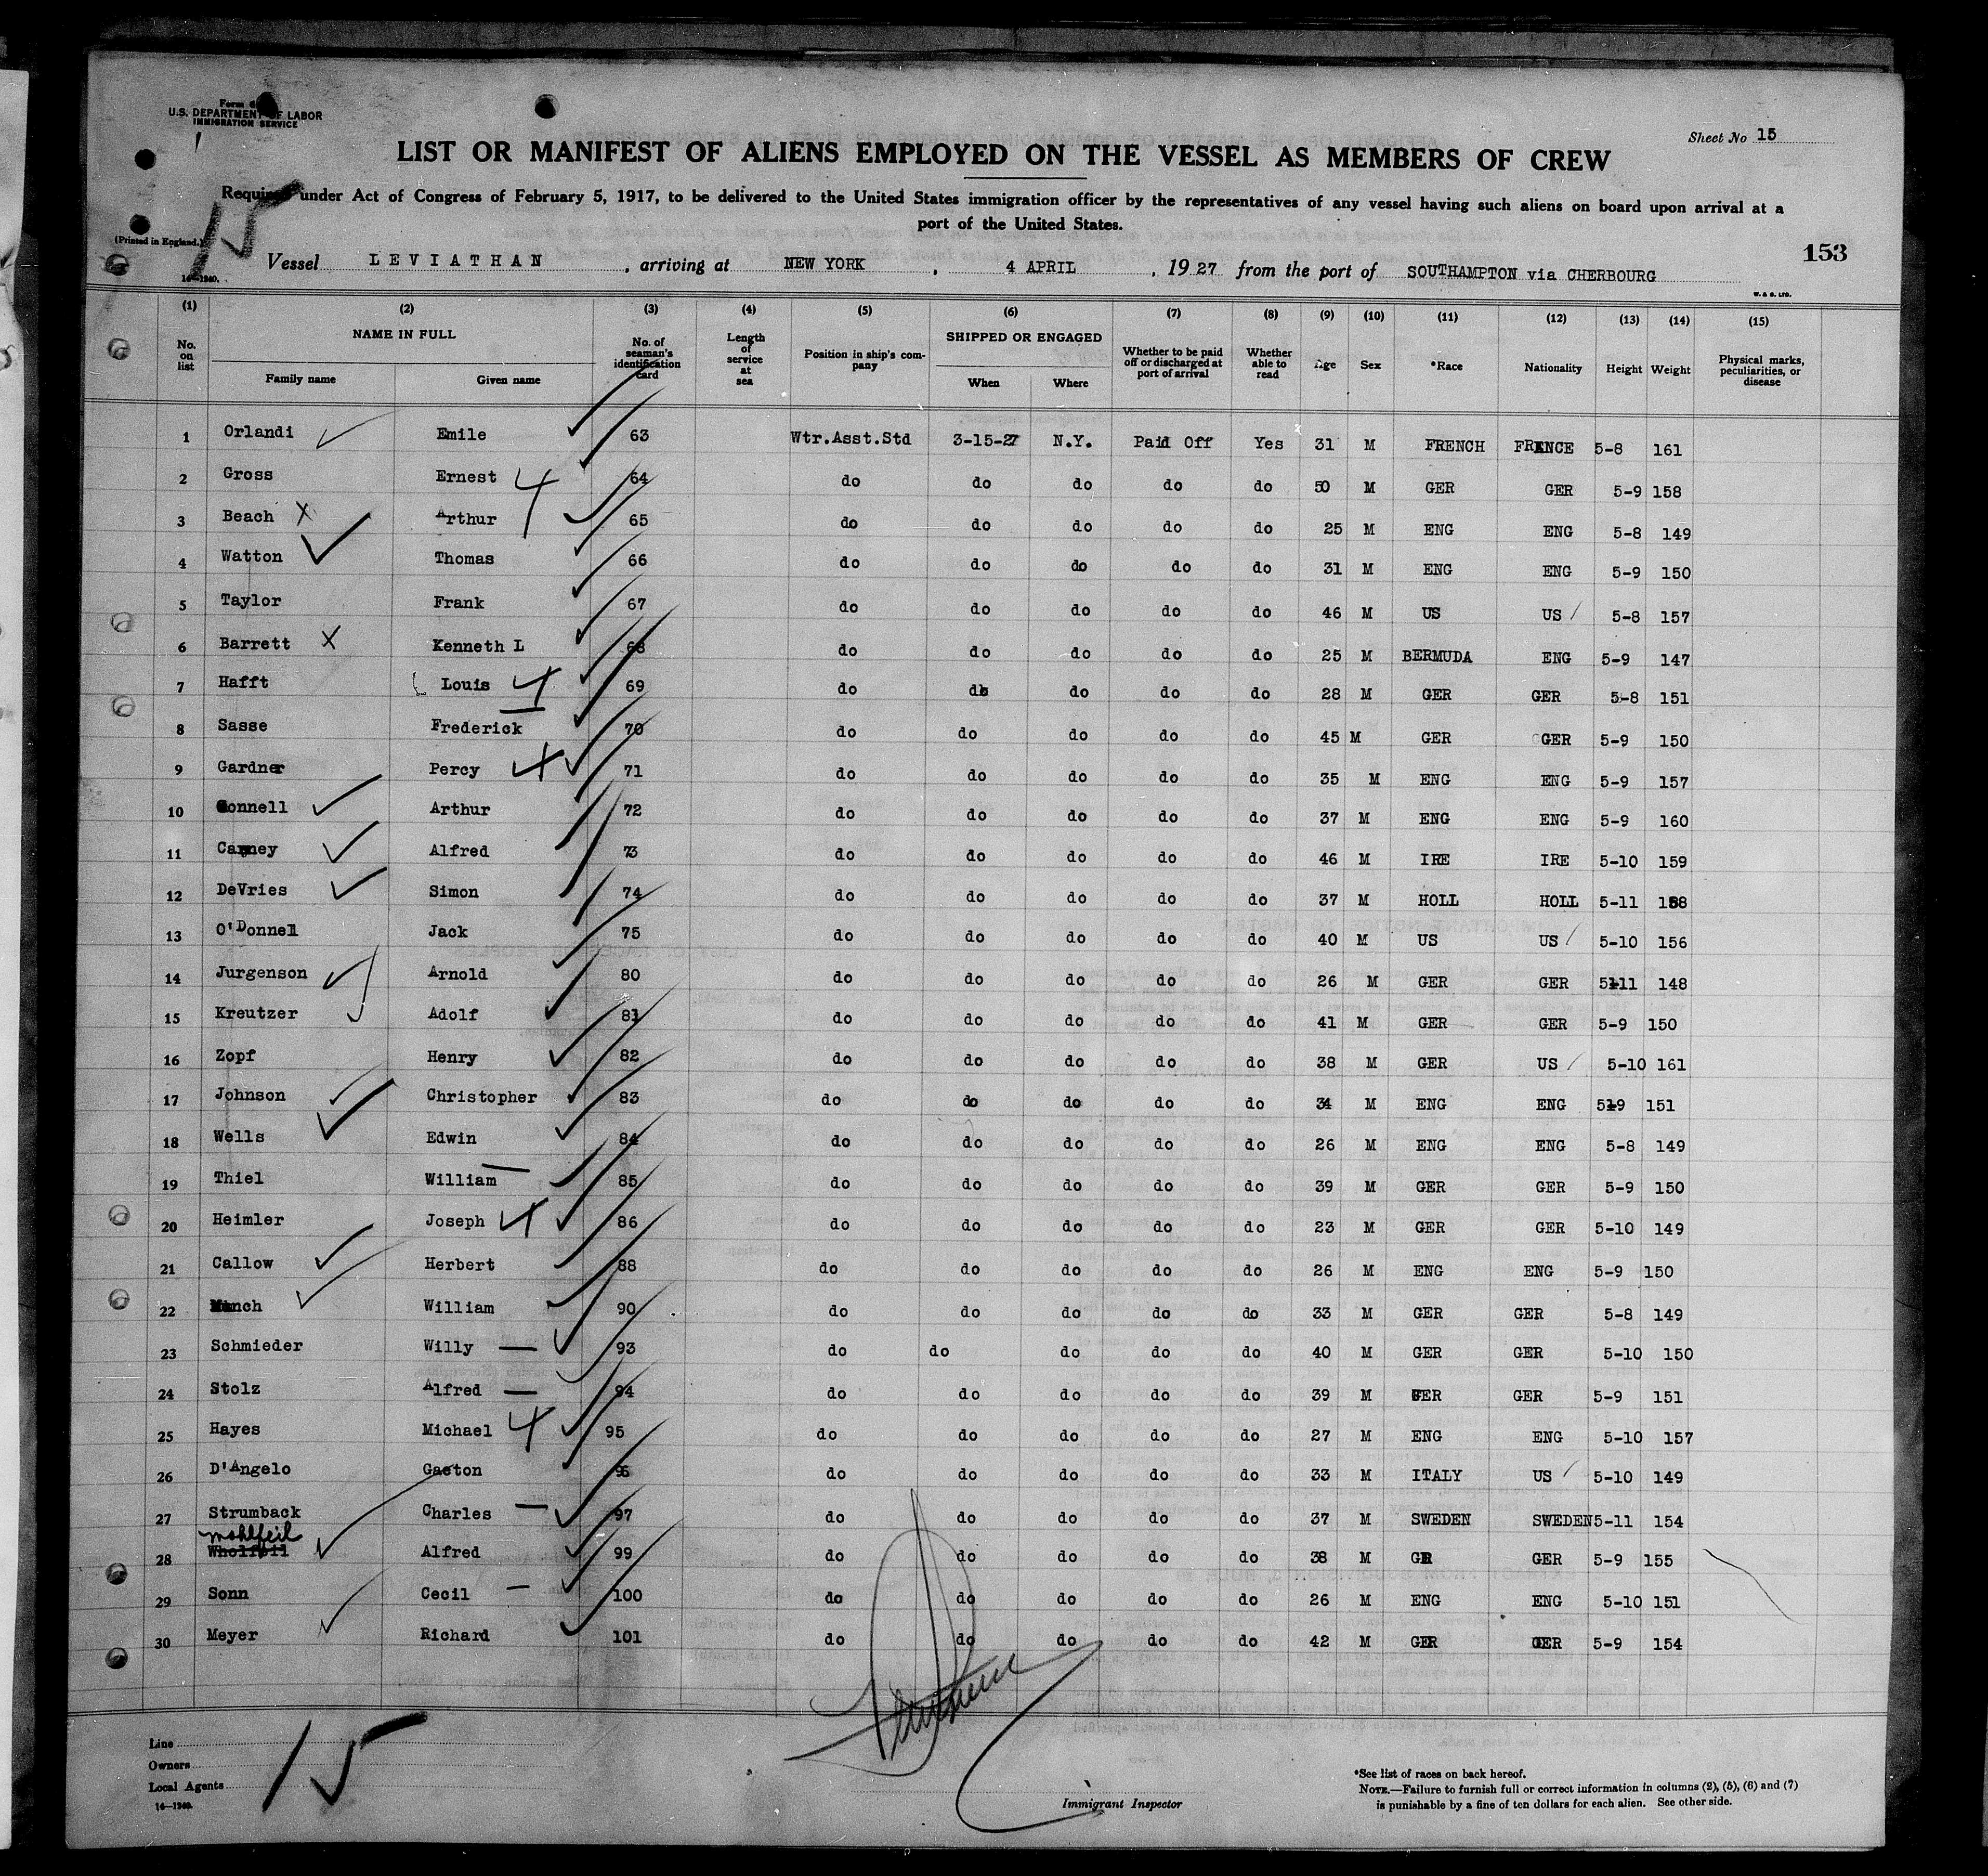 U.S. DEPARTMENT OF LABOR
IMMIGRATION SERVICE
Sheet No 15
LIST OR MANIFEST OF ALIENS EMPLOYED ON THE VESSEL AS MEMBERS OF CREW
Required under Act of Congress of February 5, 1917, to be delivered to the United States immigration officer by the representatives of any vessel having such aliens on board upon arrival at a
port of the United States.
15
(Printed in England.)
153
Vessel LEVIATHAN, arriving at NEW YORK, 4 APRIL, 1927 from the port of SOUTHAMPTON via CHERBOURG
14-1240.
W. & S. LTD.
(1) (2) (3) (4) (5) (6) (7) (8) (9) (10) (11) (12) (13) (14) (15)
No. on list NAME IN FULL Family name Given name No. of seaman's identification card Length of service at sea Position in ship's company SHIPPED OR ENGAGED When Where Whether to be paid off or discharged at port of arrival Whether able to read Age Sex *Race Nationality Height Weight Physical marks, peculiarities, or disease
1 Orlandi Emile 63 Wtr.Asst.Std 3-15-27 N.Y. Paid Off Yes 31 M FRENCH FRANCE 5-8 161
2 Gross Ernest 64 do do do do do 50 M GER GER 5-9 158
3 Beach Arthur 65 do do do do do 25 M ENG ENG 5-8 149
4 Watton Thomas 66 do do do do do 31 M ENG ENG 5-9 150
5 Taylor Frank 67 do do do do do 46 M US US 5-8 157
6 Barrett Kenneth L 68 do do do do do 25 M BERMUDA ENG 5-9 147
7 Hafft Louis 69 do do do do do 28 M GER GER 5-8 151
8 Sasse Frederick 70 do do do do do 45 M GER GER 5-9 150
9 Gardner Percy 71 do do do do do 35 M ENG ENG 5-9 157
10 Connell Arthur 72 do do do do do 37 M ENG ENG 5-9 160
11 Carney Alfred 73 do do do do do 46 M IRE IRE 5-10 159
12 DeVries Simon 74 do do do do do 37 M HOLL HOLL 5-11 158
13 O'Donnel Jack 75 do do do do do 40 M US US 5-10 156
14 Jurgenson Arnold 80 do do do do do 26 M GER GER 5-11 148
15 Kreutzer Adolf 81 do do do do do 41 M GER GER 5-9 150
16 Zopf Henry 82 do do do do do 38 M GER US 5-10 161
17 Johnson Christopher 83 do do do do do 34 M ENG ENG 5-9 151
18 Wells Edwin 84 do do do do do 26 M ENG ENG 5-8 149
19 Thiel William 85 do do do do do 39 M GER GER 5-9 150
20 Heimler Joseph 86 do do do do do 23 M GER GER 5-10 149
21 Callow Herbert 88 do do do do do 26 M ENG ENG 5-9 150
22 William 90 do do do do do 33 M GER GER 5-8 149
23 Schmieder Willy 93 do do do do do 40 M GER GER 5-10 150
24 Stolz Alfred 94 do do do do do 39 M GER GER 5-9 151
25 Hayes Michael 95 do do do do do 27 M ENG ENG 5-10 157
26 D'Angelo Gaston do do do do do 33 M ITALY US 5-10 149
27 Strumback Charles 97 do do do do do 37 M SWEDEN SWEDEN 5-11 154
Wohlfeil
28 Wholfeil Alfred 99 do do do do do 38 M GER GER 5-9 155
29 Sonn Cecil 100 do do do do do 26 M ENG ENG 5-10 151
30 Meyer Richard 101 do do do do do 42 M GER GER 5-9 154
Line
Owners
Local Agents
14-1240.
15
Immigrant Inspector
*See list of races on back hereof.
NOTE.—Failure to furnish full or correct information in columns (2), (5), (6) and (7)
is punishable by a fine of ten dollars for each alien. See other side.